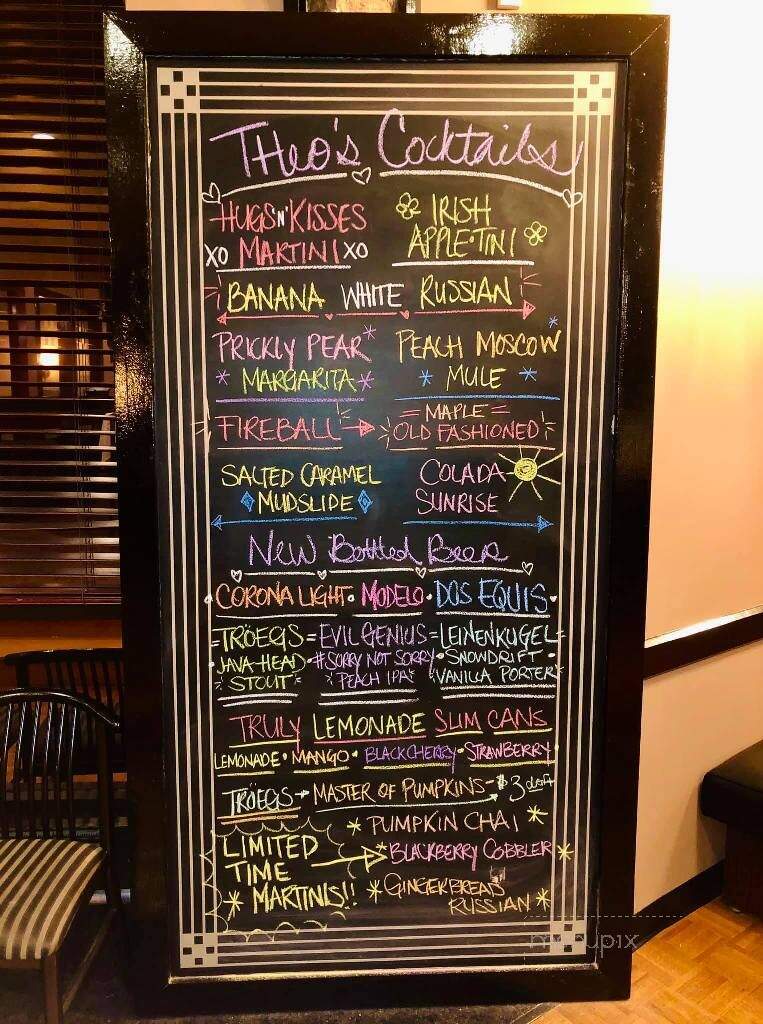 THEO'S COCKTAILS
HUGS 'N' KISSES
XO MARTINI XO
IRISH
APPLE•TINI
BANANA WHITE RUSSIAN
PRICKLY PEAR
MARGARITA
PEACH MOSCOW
MULE
FIREBALL
MAPLE
OLD FASHIONED
SALTED CARAMEL
MUDSLIDE
COLADA
SUNRISE
NEW Bottled Beer
CORONA LIGHT • MODELO • DOS EQUIS
TRÖEGS
JAVA-HEAD
STOUT
EVIL GENIUS
#SORRY NOT SORRY
PEACH IPA
LEINENKUGEL
SNOWDRIFT
VANILLA PORTER
TRULY LEMONADE SLIM CANS
LEMONADE • MANGO • BLACK CHERRY • STRAWBERRY
TRÖEGS → MASTER OF PUMPKINS - $3 draft
LIMITED
TIME
MARTINIS!!
PUMPKIN CHAI
BLACKBERRY COBBLER
GINGERBREAD
RUSSIAN